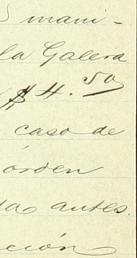 mani-
la Galera
$4.50
caso de
órden
das antes
ción